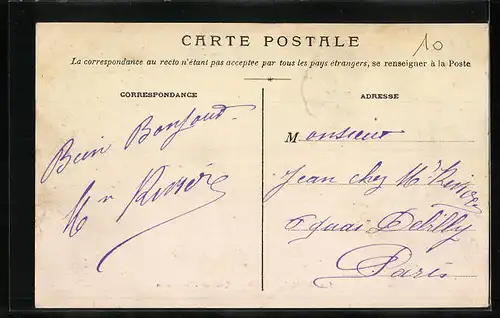 CARTE POSTALE
10
La correspondance au recto n'étant pas acceptée par tous les pays étrangers, se renseigner à la Poste
CORRESPONDANCE
Bien Bonjour
Mn
ADRESSE
Monsieur
Jean chez Mr
6 quai Debilly
Paris